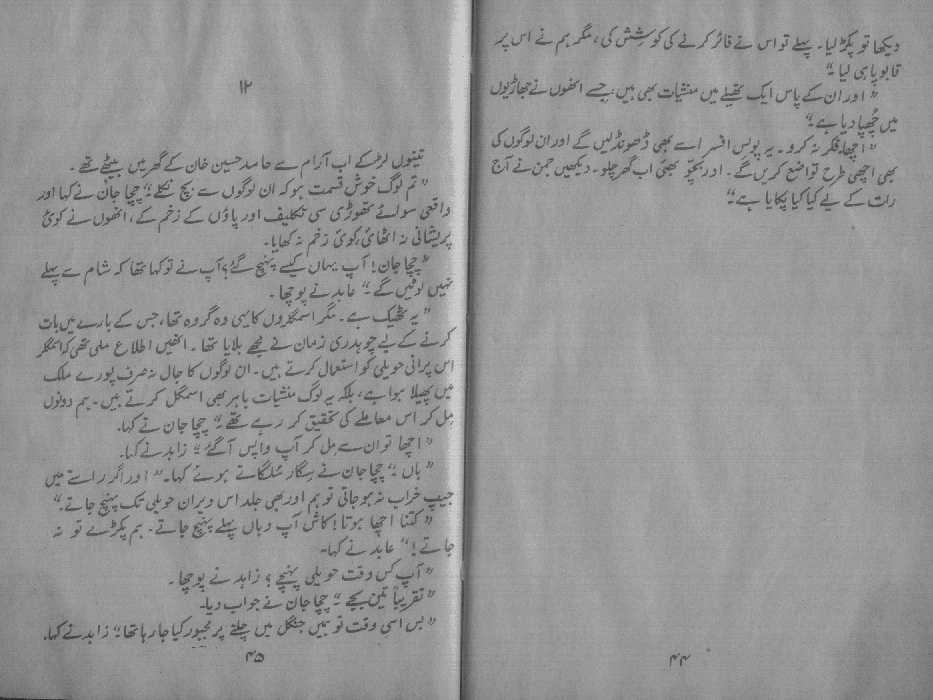 دیکھا تو پکڑ لیا۔ پہلے تو اس نے فائر کرنے کی کوشِش کی، مگر ہم نے اس پر
قابو پا ہی لیا۔“
”اور ان کے پاس ایک تھیلے میں منشیات بھی ہیں، جسے انھوں نے جھاڑیوں
میں چُھپا دیا ہے۔“
”اچھا، فکر نہ کرو۔ یہ پولس افسر اسے بھی ڈھونڈ لیں گے اور ان لوگوں کی
بھی اچھی طرح تواضع کریں گے۔ اور بچّو بھئی اب گھر چلو۔ دیکھیں جمن نے آج
رات کے لیے کیا کیا پکایا ہے۔“
۴۴
۱۲
تینوں لڑکے اب آرام سے حامد حسین خان کے گھر میں بیٹھے تھے۔
”تم لوگ خوش قسمت ہو کہ ان لوگوں سے بچ نکلے۔“ چچا جان نے کہا اور
واقعی سوائے تھوڑی سی تکلیف اور پاؤں کے زخم کے، انھوں نے کوئی
پریشانی نہ اٹھائی، کوئی زخم نہ کھایا۔
”چچا جان! آپ یہاں کیسے پہنچ گئے؟ آپ نے تو کہا تھا کہ شام سے پہلے
نہیں لوٹیں گے۔“ عابد نے پوچھا۔
”یہ ٹھیک ہے۔ مگر اسمگلروں کا یہی وہ گروہ تھا، جس کے بارے میں بات
کرنے کے لیے چوہدری زمان نے مجھے بلایا تھا۔ انھیں اطلاع ملی تھی کہ اسمگلر
اس پرانی حویلی کو استعمال کرتے ہیں۔ ان لوگوں کا جال نہ صرف پورے ملک
میں پھیلا ہوا ہے، بلکہ یہ لوگ منشیات باہر بھی اسمگل کرتے ہیں۔ ہم دونوں
مِل کر اس معاملے کی تحقیق کر رہے تھے۔“ چچا جان نے کہا۔
”اچھا تو ان سے مل کر آپ واپس آ گئے۔“ زاہد نے کہا۔
”ہاں۔“ چچا جان نے سگار سُلگاتے ہوئے کہا۔ ”اور اگر راستے میں
جیپ خراب نہ ہو جاتی تو ہم اور بھی جلد اس ویران حویلی تک پہنچ جاتے۔“
”کتنا اچھا ہوتا! کاش آپ وہاں پہلے پہنچ جاتے۔ ہم پکڑے تو نہ
جاتے!“ عابد نے کہا۔
”آپ کس وقت حویلی پہنچے؟ زاہد نے پوچھا۔
”تقریباً تین بجے۔“ چچا جان نے جواب دیا۔
”بس اسی وقت تو ہمیں جنگل میں چلنے پر مجبور کیا جا رہا تھا۔“ زاہد نے کہا۔
۴۵